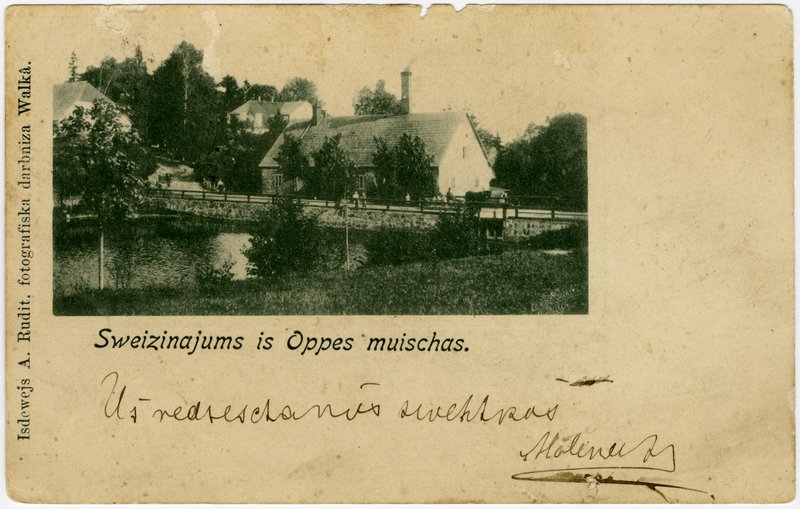 Isdewejs A. Rudit, fotografiska darbniza Walkâ.
Sweizinajums is Oppes muischas.
Us redseschanos swehtkos